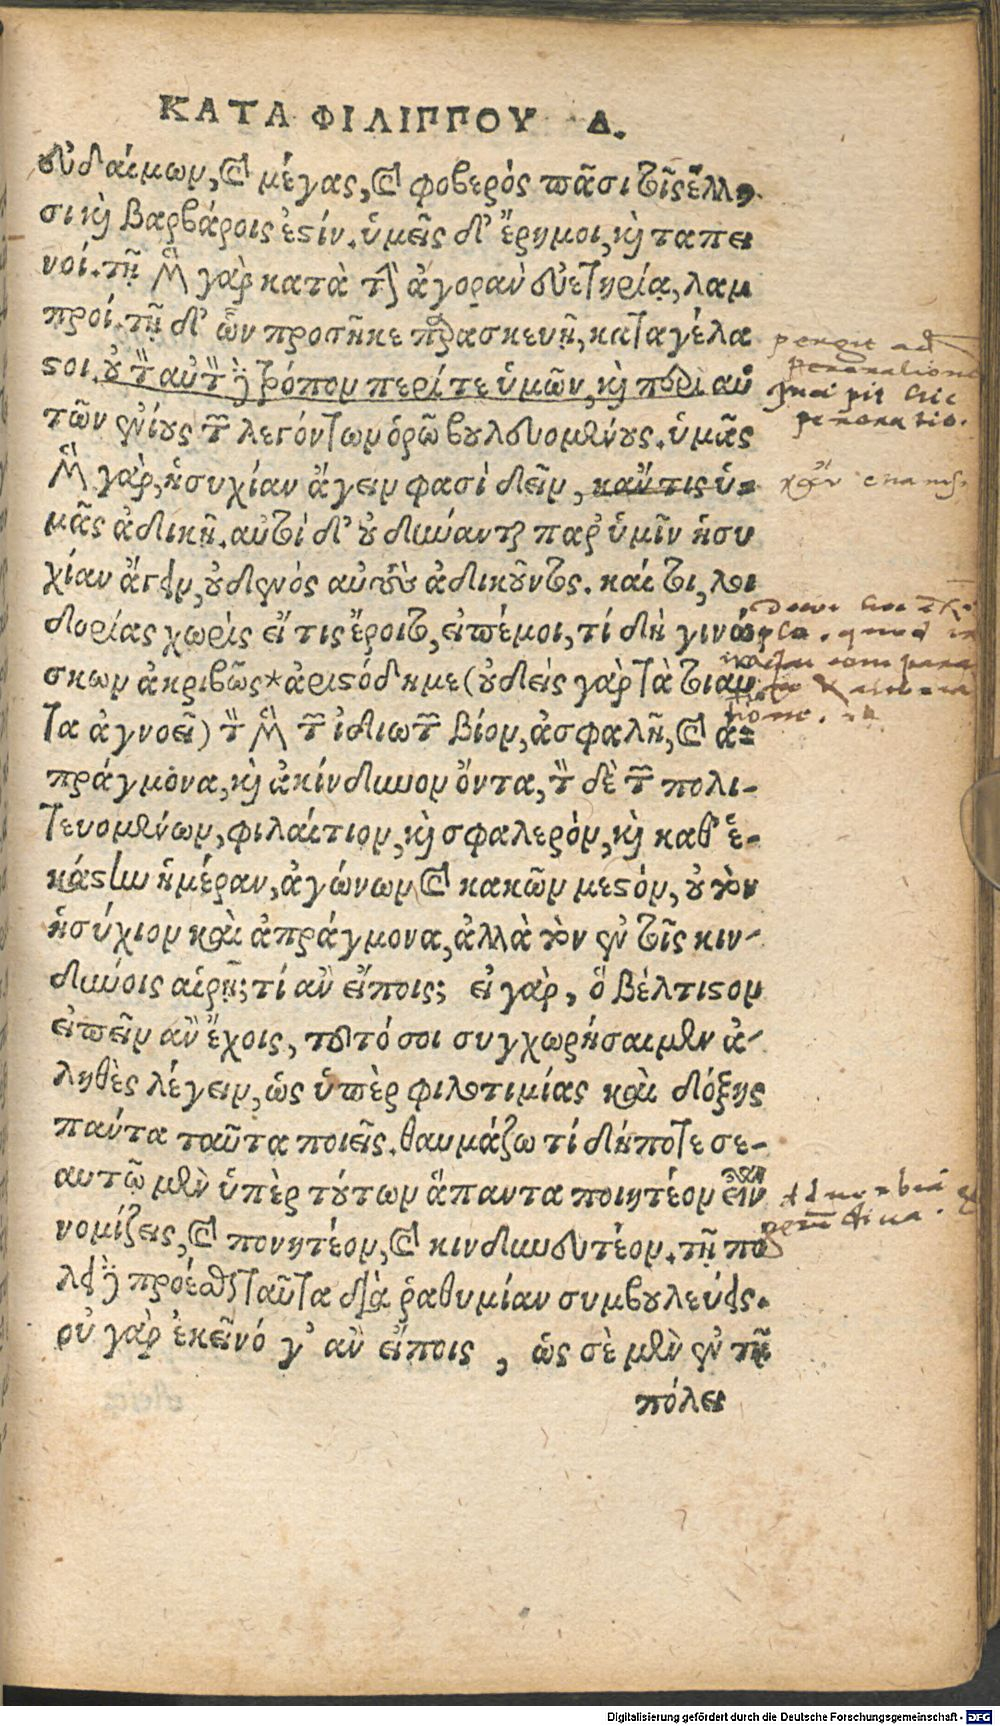 ΚΑΤΑ ΦΙΛΙΠΠΟΥ Δ.
εὐδαίμων, καὶ μέγας, καὶ φοβερός πᾶσι τοῖς ἕλλη-
σι καὶ βαρβάροις ἐστίν. ὑμεῖς δ' ἔρημοι, καὶ ταπει
νοί. τῇ μὲν γὰρ κατὰ τὴν ἀγορὰν εὐετηρίᾳ, λαμ
προί. τῇ δ' ὧν προσῆκε παρασκευῇ, καταγέλα
στοι. οὐ τὸν αὐτὸν δὲ τρόπον περί τε ὑμῶν, καὶ περὶ αὑ
τῶν ἐνίους τῶν λεγόντων ὁρῶ βουλευομένους. ὑμᾶς
μὲν γὰρ, ἡσυχίαν ἄγειν φασὶ δεῖν, κἄν τις ὑ-
μᾶς ἀδικῇ. αὐτοὶ δ' οὐ δύνανται παρ' ὑμῖν ἡσυ
χίαν ἄγειν, οὐδενός αὐτοὺς ἀδικοῦντος. καί τοι, λοι
δορίας χωρὶς εἴ τις ἔροιτο, εἰπέ μοι, τί δὴ γινώ
σκων ἀκριβῶς* ἀριστόδημε (οὐδεὶς γὰρ τὰ τοιαυ
τα ἀγνοεῖ) τὸν μὲν τῶν ἰδιωτῶν βίον, ἀσφαλῆ, καὶ ἀ-
πράγμονα, καὶ ἀκίνδυνον ὄντα, τὸν δὲ τῶν πολι-
τευομένων, φιλαίτιον, καὶ σφαλερὸν, καὶ καθ' ἑ-
κάστην ἡμέραν, ἀγώνων καὶ κακῶν μεστόν, οὐ τὸν
ἡσύχιον καὶ ἀπράγμονα, ἀλλὰ τὸν ἐν τοῖς κιν-
δύνοις αἱρῇ; τί ἂν εἴποις; εἰ γὰρ, ὃ βέλτιστον
εἰπεῖν ἂν ἔχοις, τοῦτό σοι συγχωρήσαιμεν ἀ-
ληθὲς λέγειν, ὡς ὑπὲρ φιλοτιμίας καὶ δόξης
πάντα ταῦτα ποιεῖς. θαυμάζω τί δήποτε σε-
αυτῷ μὲν ὑπὲρ τούτων ἅπαντα ποιητέον εἶναι
νομίζεις, καὶ πονητέον, καὶ κινδυνευτέον. τῇ πό
λει δὲ προέσθαι ταῦτα διὰ ῥαθυμίαν συμβουλεύεις.
οὐ γὰρ ἐκεῖνό γ' ἂν εἴποις, ὡς σὲ μὲν ἐν τῇ
πόλει
pergit ad
perorationem
quae sit hic
peroratio.
Digitalisierung gefördert durch die Deutsche Forschungsgemeinschaft - DFG